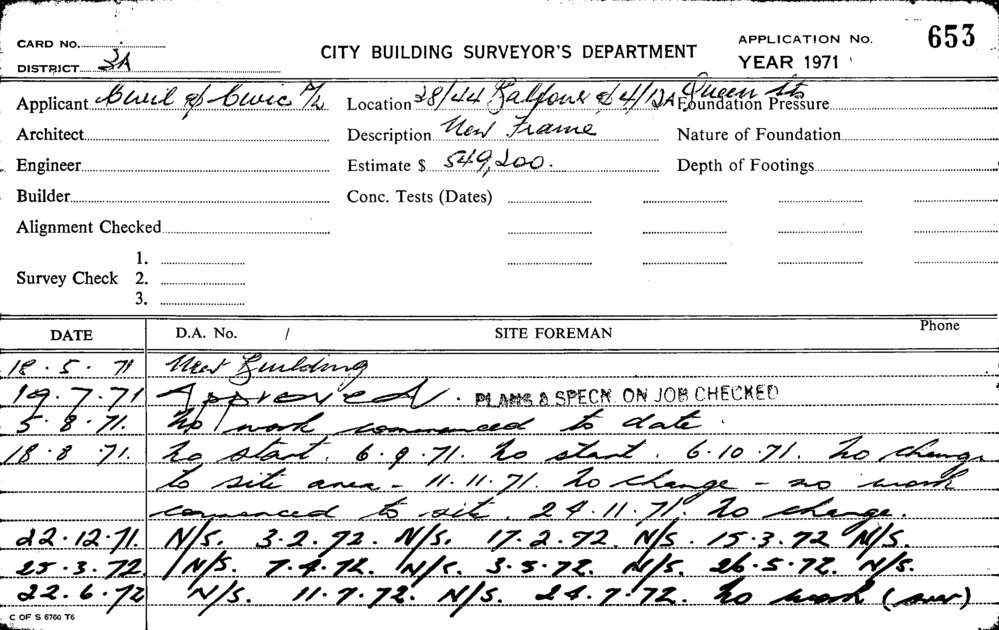 CARD No.
CITY BUILDING SURVEYOR'S DEPARTMENT
APPLICATION No. 653
DISTRICT 3A
YEAR 1971
Applicant Civil & Civic P/L Location 38/44 Balfour & 4/12A Queen Sts Foundation Pressure
Architect Description New Frame Nature of Foundation
Engineer Estimate $ 549,200. Depth of Footings
Builder Conc. Tests (Dates)
Alignment Checked
1.
Survey Check 2.
3.
DATE D.A. No. / SITE FOREMAN Phone
18.5.71 New Building
19.7.71 Approved. PLANS & SPECN ON JOB CHECKED
5.8.71. No work commenced to date.
18.8.71. No start. 6.9.71. No start. 6.10.71. No change
to site area - 11.11.71. No change - no work
commenced to site. 24.11.71. No change.
22.12.71. N/S. 3.2.72. N/S. 17.2.72. N/S. 15.3.72 N/S.
25.3.72 N/S. 7.4.72. N/S. 3.5.72. N/S. 26.5.72. N/S.
22.6.72 N/S. 11.7.72. N/S. 24.7.72. No work (over)
C OF S 6760 T6